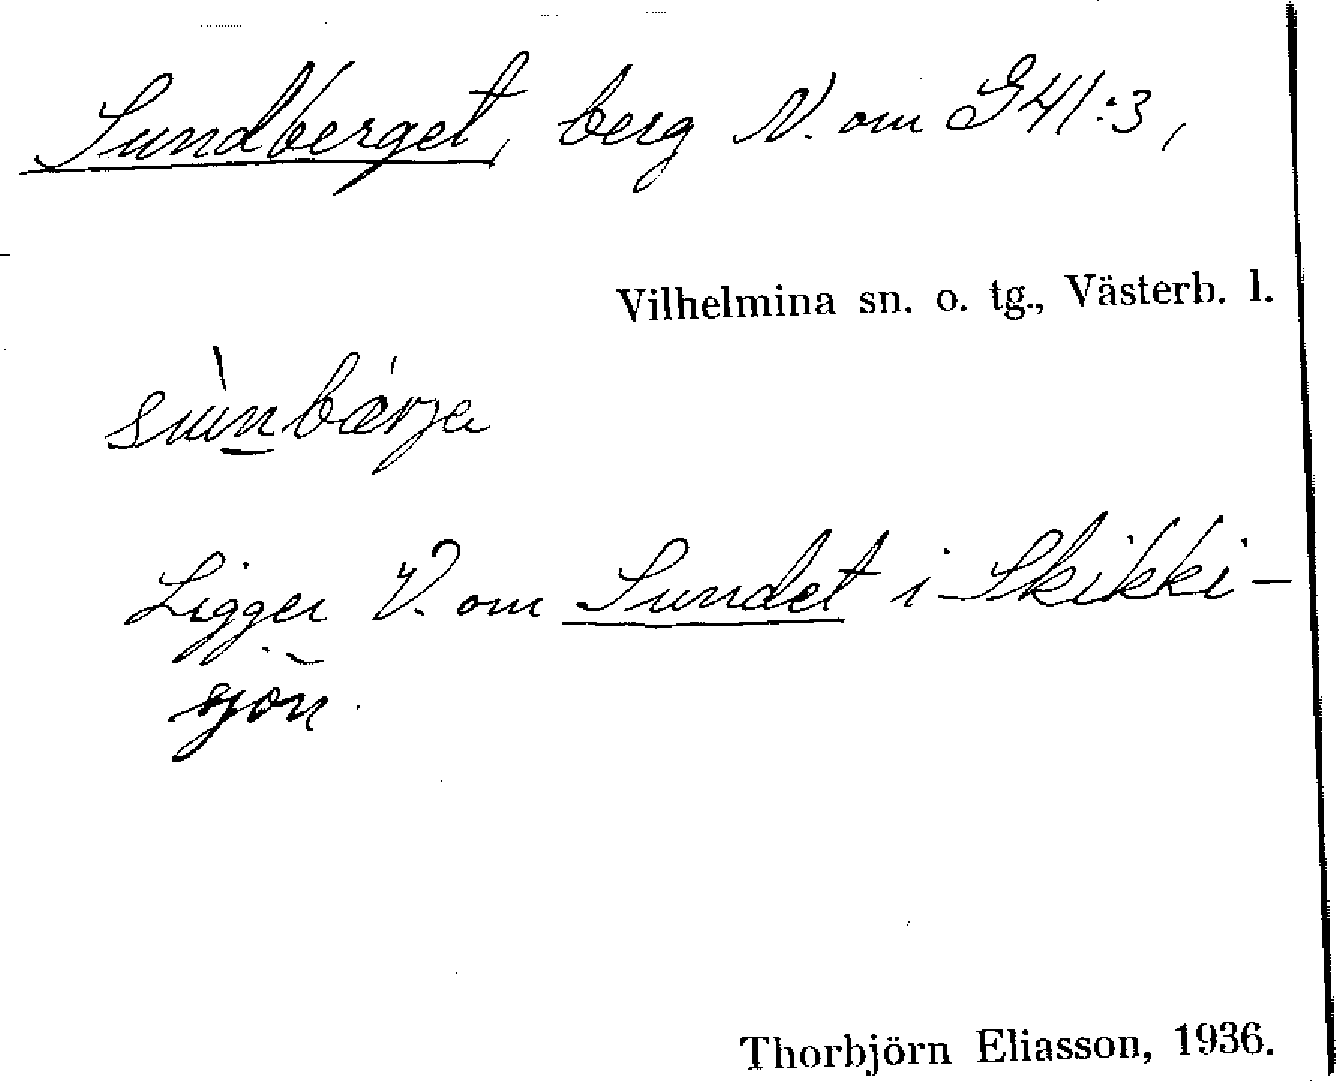 Sundberget, berg N. om G41:3,
Vilhelmina sn. o. tg., Västerb. l.
sùnbærje
Ligger V. om Sundet i Skikki-
sjön.
Thorbjörn Eliasson, 1936.